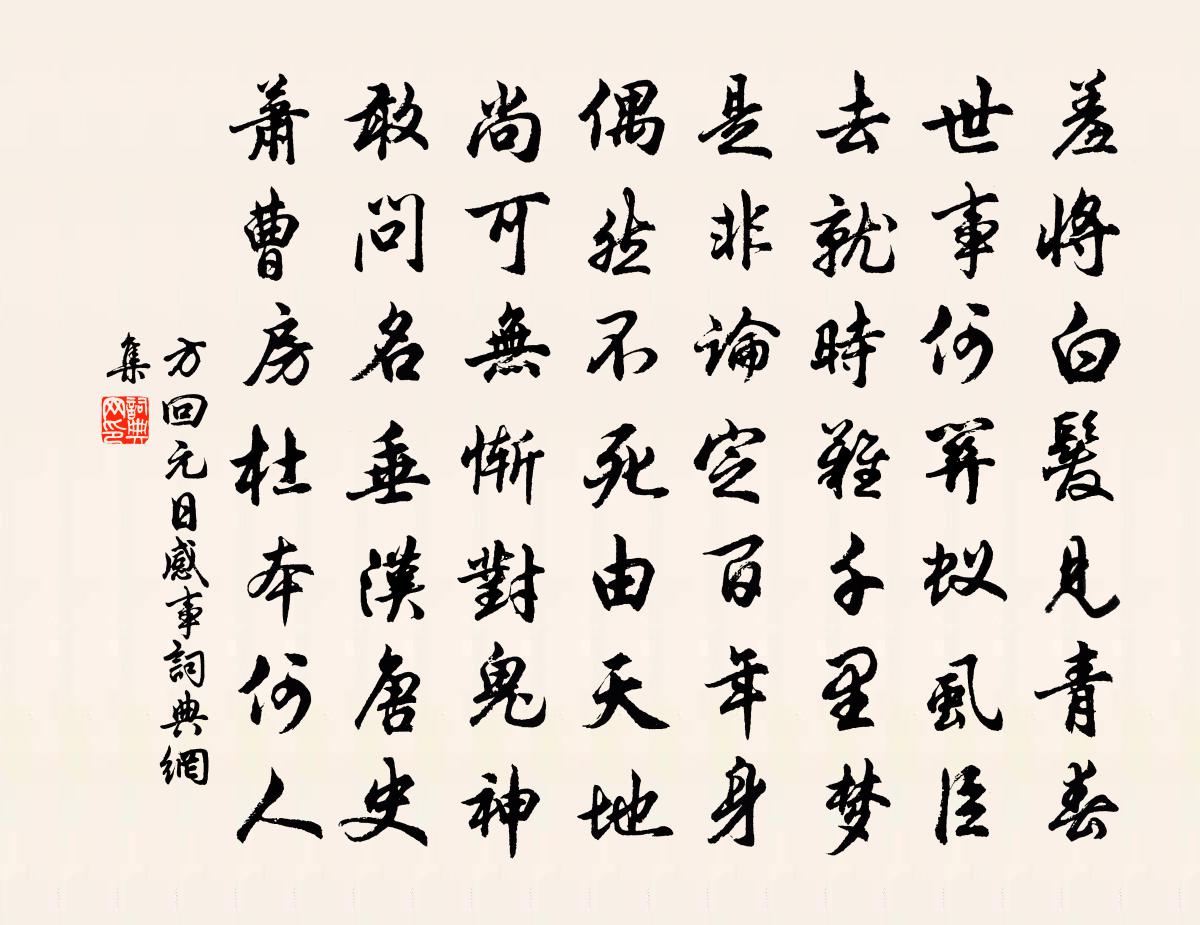 羞將白髮見青春
世事何關蚁虱臣
去就時難千里梦
是非論定百年身
偶然不死由天地
尚可無慚對鬼神
敢問名垂漢唐史
蕭曹房杜本何人
方回元日感事詞典網
集
詞典网印